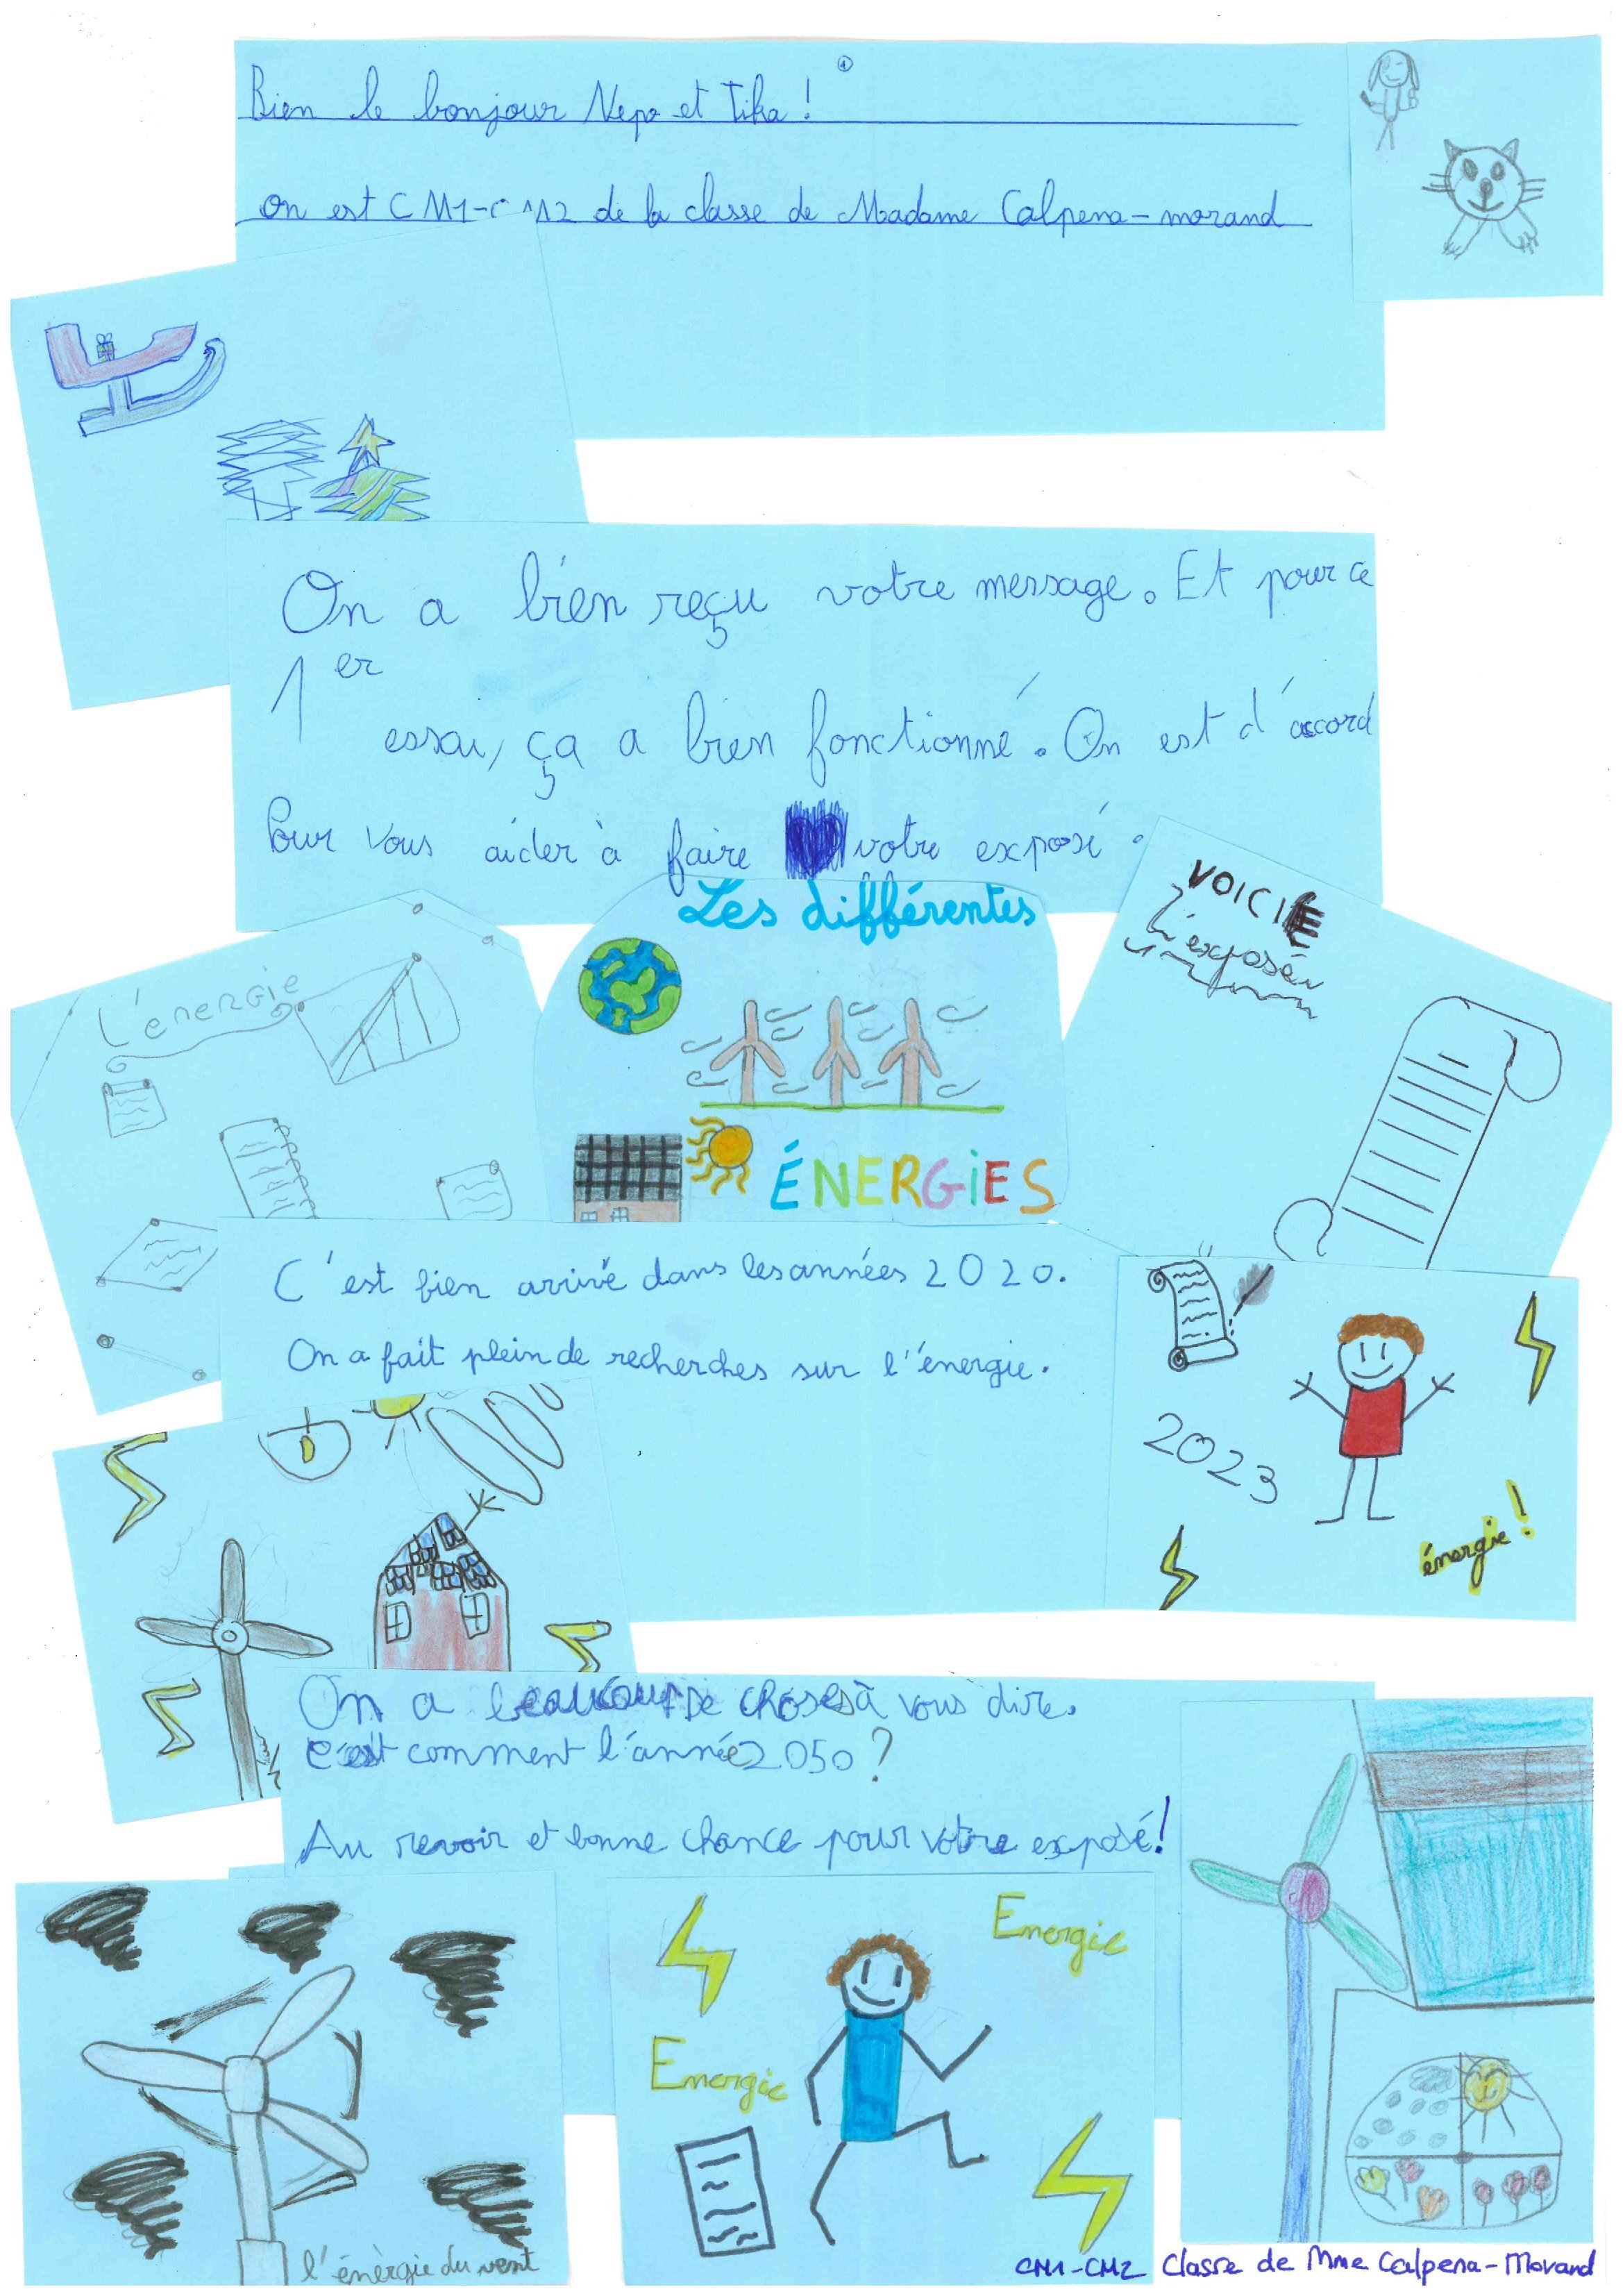 Bien le bonjour Nepo et Tika !
on est CM1-CM2 de la classe de Madame Calpena-morand
On a bien reçu votre message. Et pour ce
1er
essai, ça a bien fonctionné. On est d'accord
Pour vous aider à faire votre exposé.
Les différentes
ÉNERGIES
L'énergie
VOICI
L'exposé
C'est bien arrivé dans les années 2020.
On a fait plein de recherches sur l'énergie.
2023
énergie !
On a beaucoup de choses à vous dire.
C'est comment l'année 2050 ?
Au revoir et bonne chance pour votre exposé !
l'énèrgie du vent
Energie
Energie
CM1-CM2 Classe de Mme Calpena-Morand